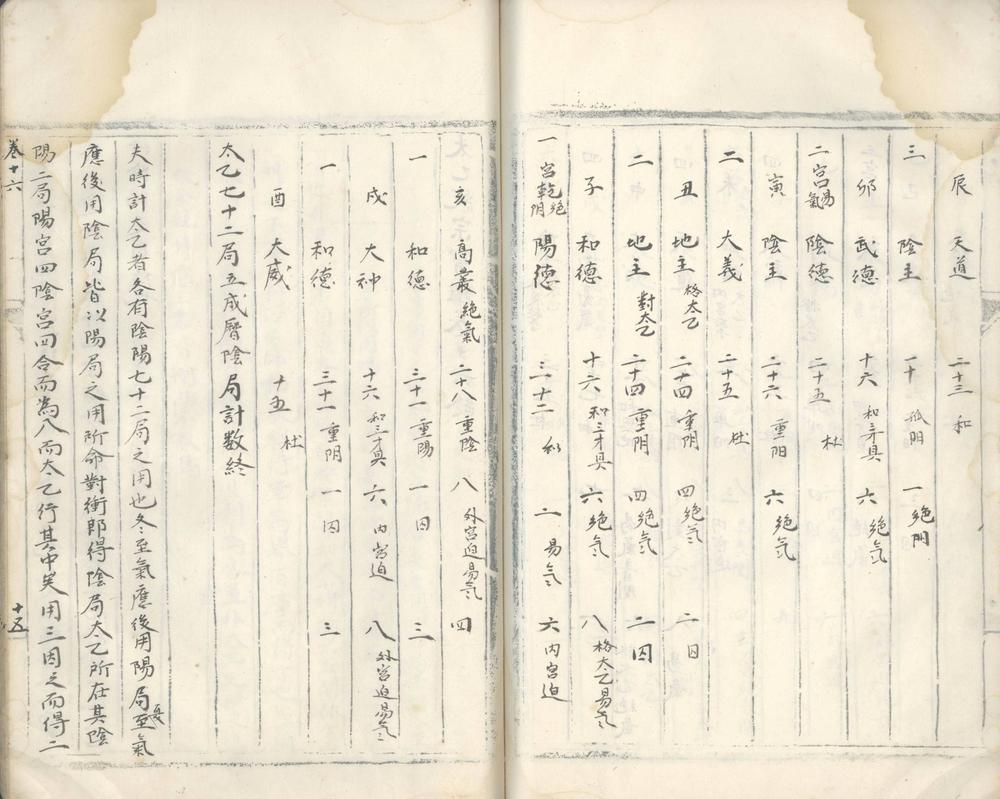 辰 天道 二十三 和
三 陰主 一十 孤阴 一 绝阴
卯 武德 十六 和三才具 六 绝氣
二宫易氣 陰德 二十五 杜
寅 陰主 二十六 重阳 六 绝氣
二 大義 二十五 杜
丑 地主 格太乙 二十四 重阴 四 绝氣 二 囚
二 地主 對太乙 二十四 重阴 四 绝氣 二 囚
子 和德 十六 和三才具 六 绝氣 八 格太乙易氣
一宫乾绝阴 陽德 三十二 和 二 易氣 六 内宫迫
亥 高叢 絶氣 二十八 重陰 八 外宫迫易氣 四
一 和德 三十一 重陽 一 囚 三
戌 大神 十六 和三才具 六 内宫迫 八 外宫迫易氣
一 和德 三十一 重阴 一 囚 三
酉 大威 十五 杜
太乙七十二局五成曆陰局計数終
夫時計太乙者各有陰陽七十二局之用也冬至氣應後用陽局夏至氣
應後用陰局皆以陽局之用所命對衝即得陰局太乙所在其陰
陽二局陽宫四陰宫四合而為八而太乙行其中矣用三因之而得二
卷十六 十五